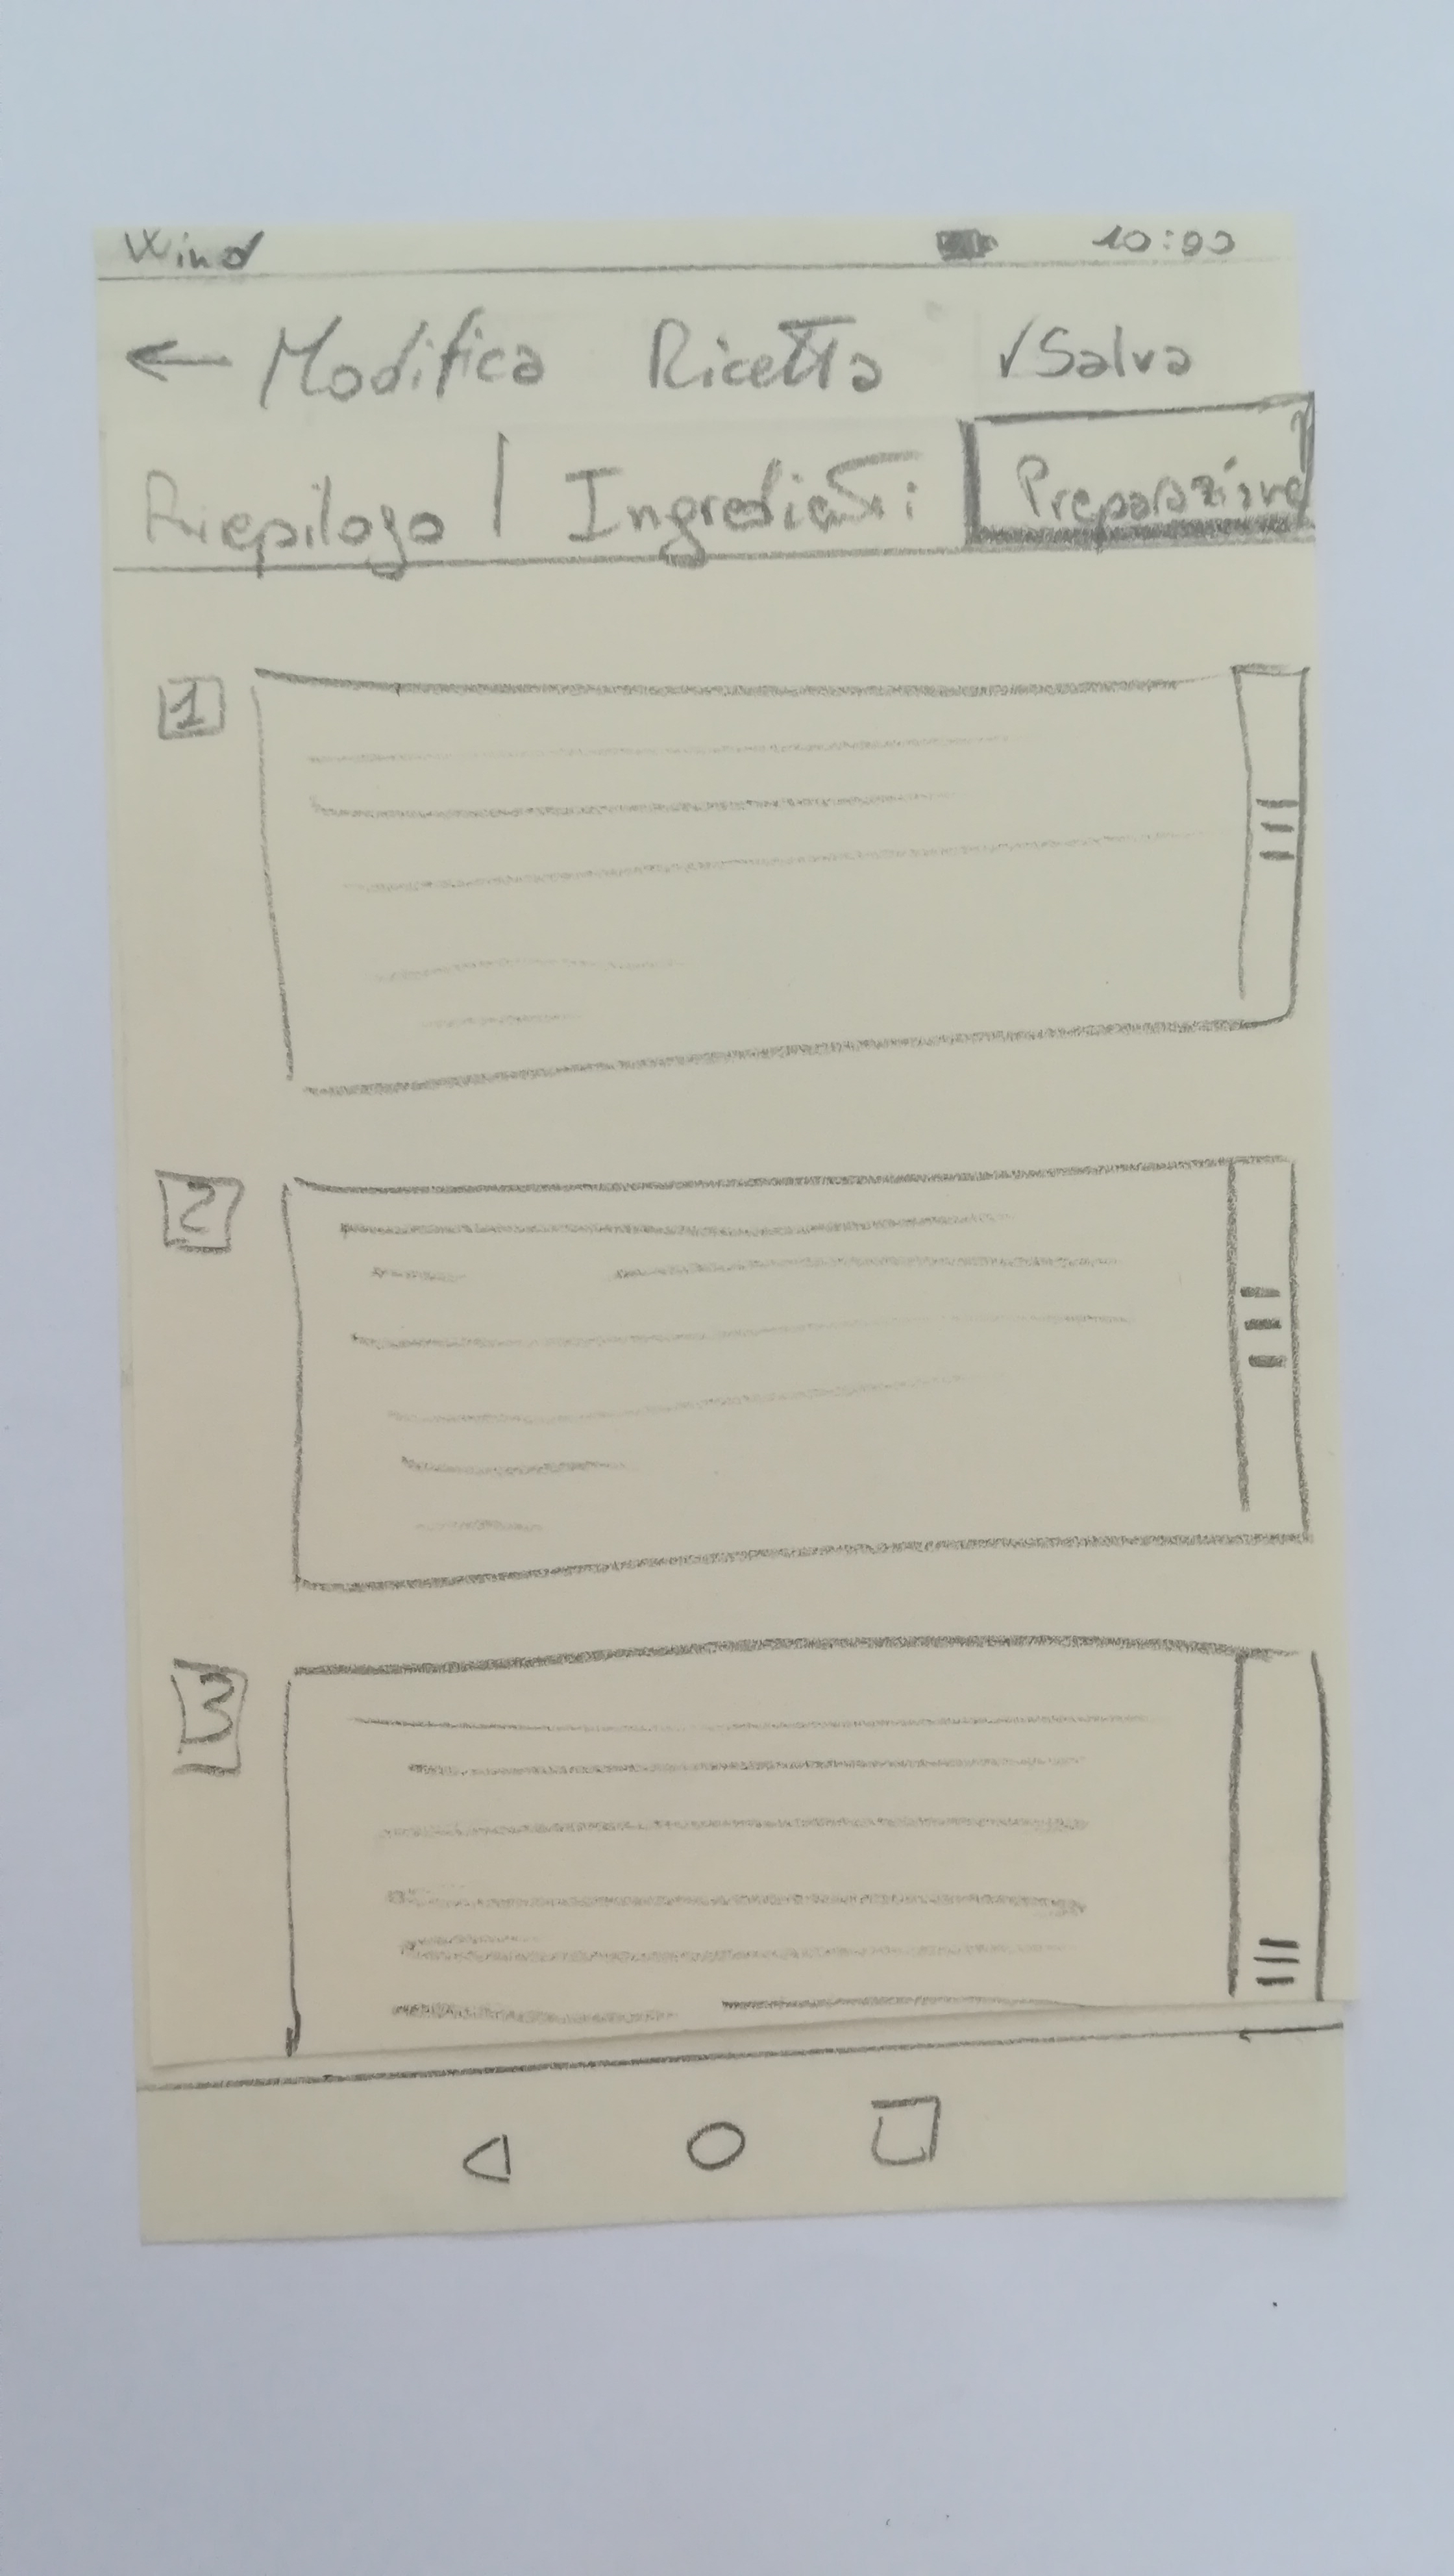 Wind 10:00
← Modifica Ricetta √ Salva
Riepilogo | Ingredienti Preparazione
1
2
3